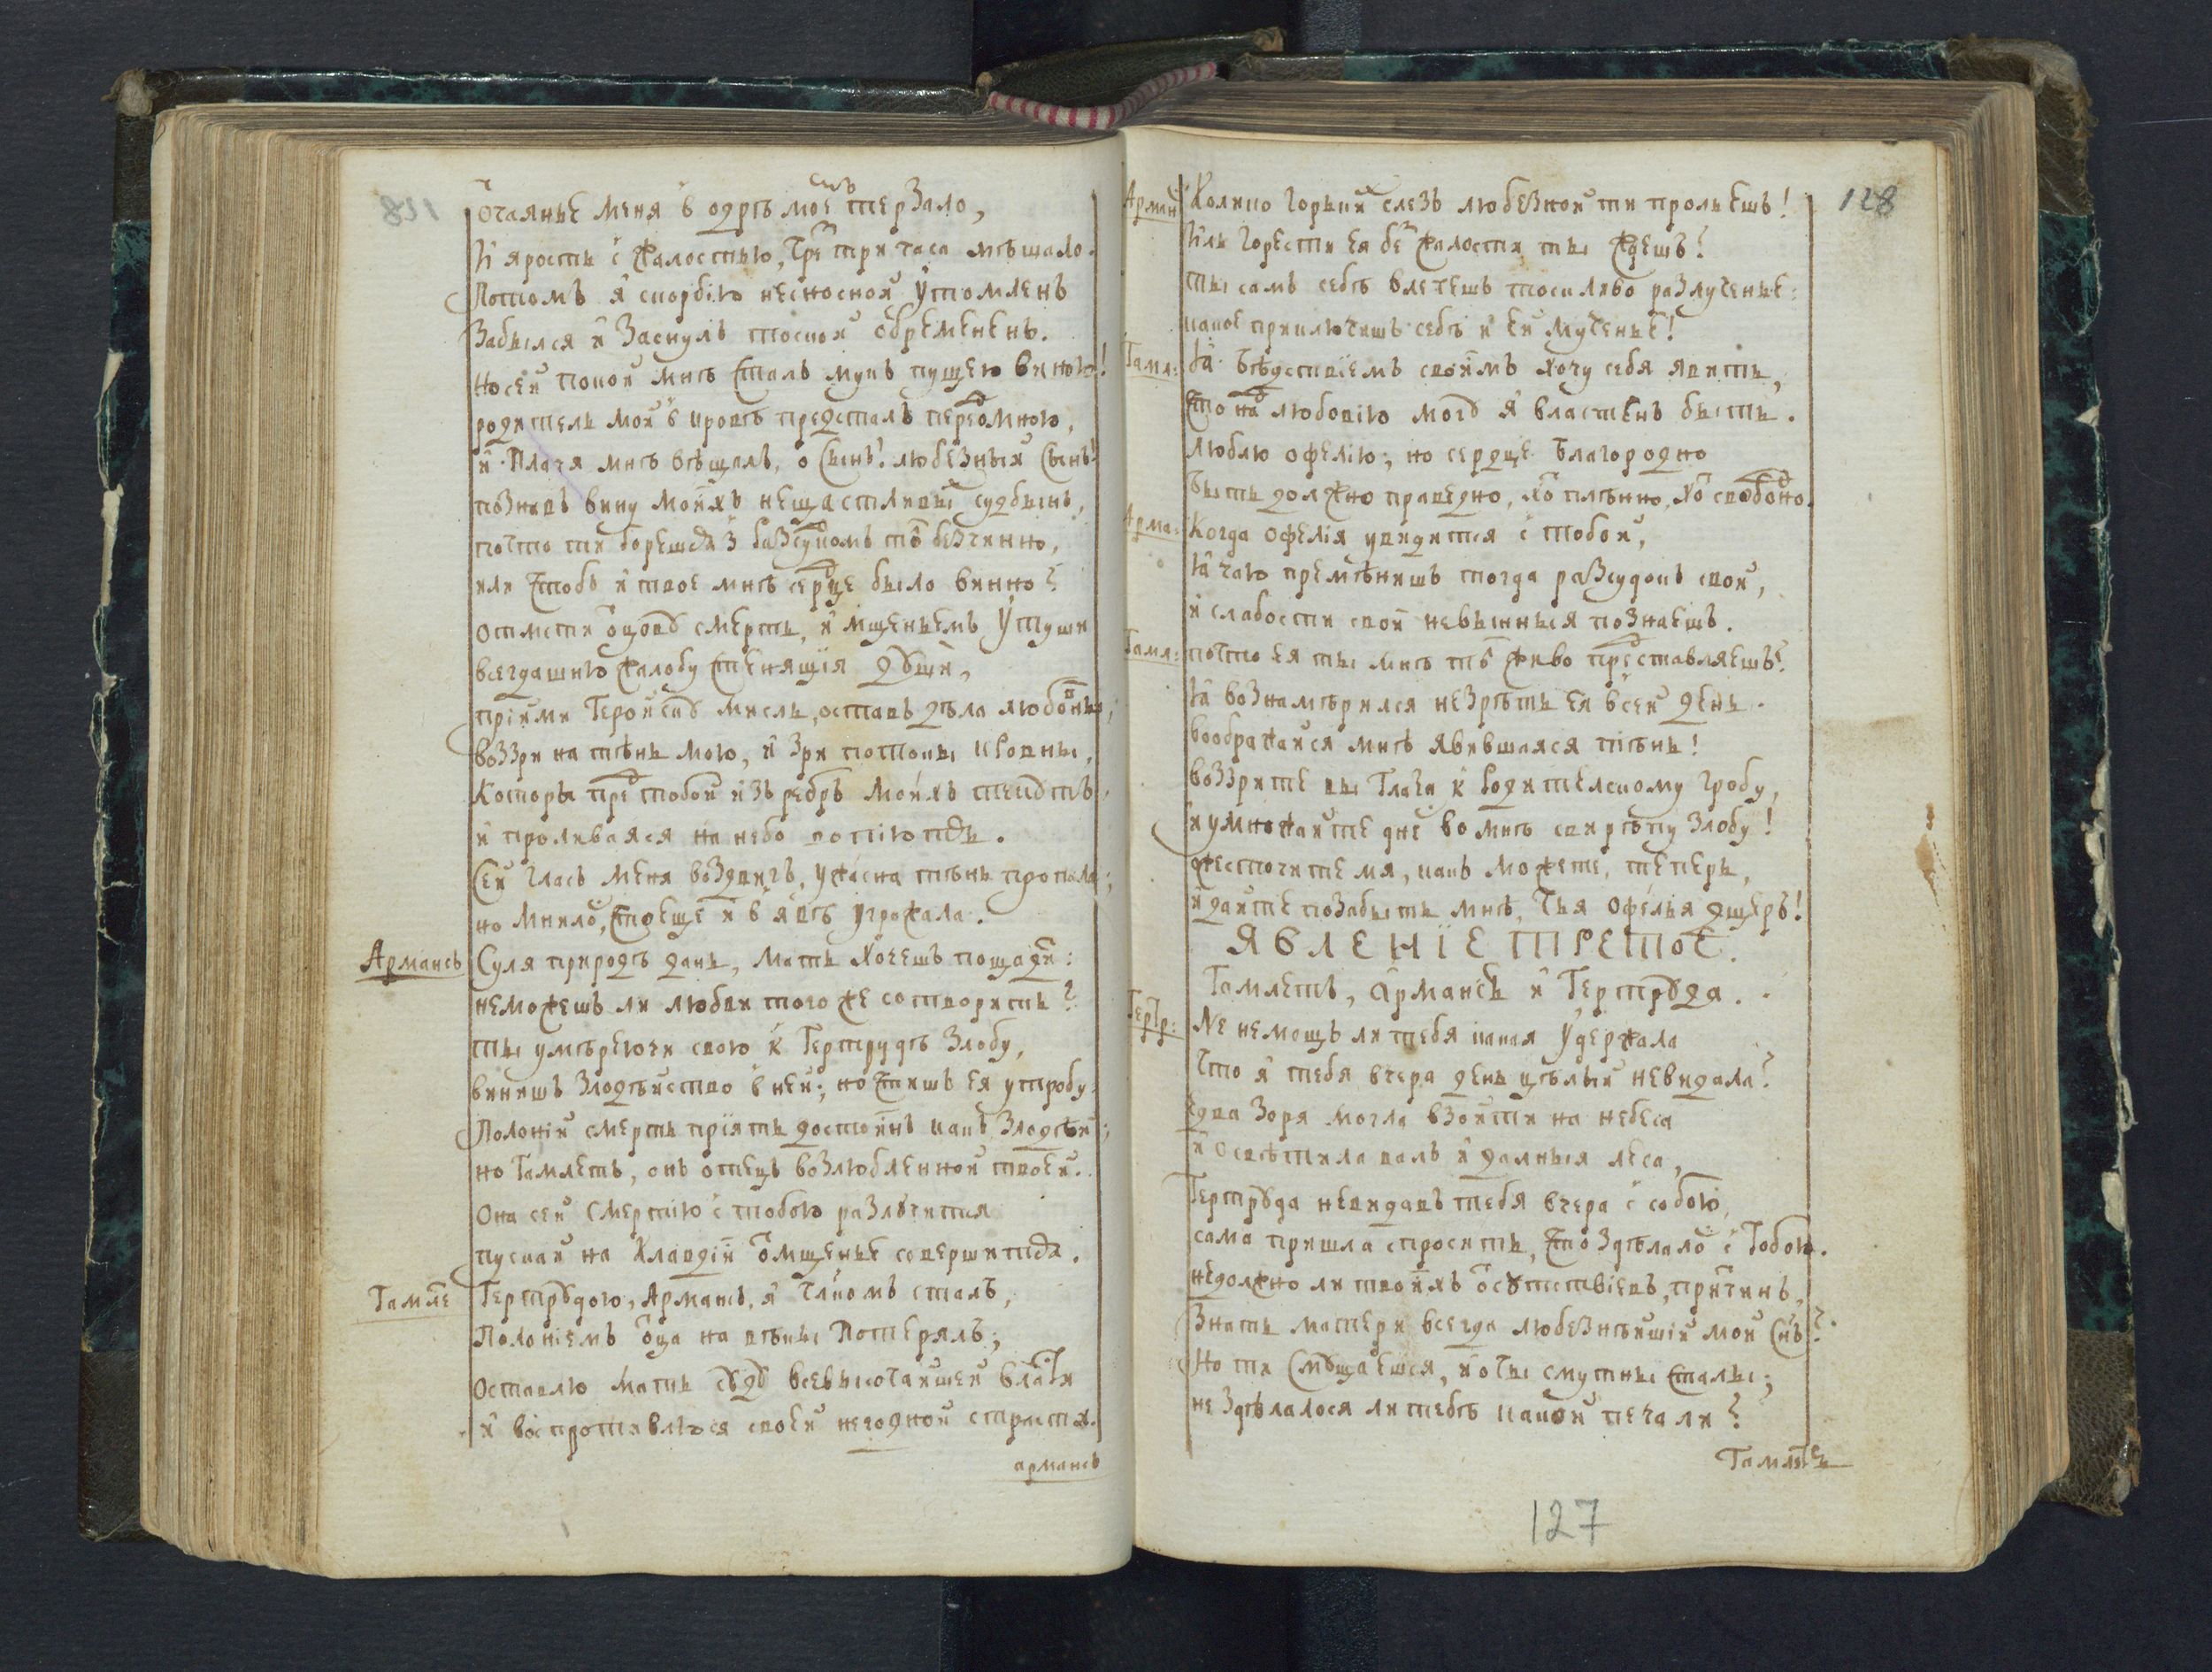 Отчаянье меня в одрѣ моемъ терзало,
И ярость с жалостью, чрез три часа мѣшало.
Потомъ я скорбію несносной утомленъ
Забылся и Заснулъ тоской обремененъ.
Но сей покой мнѣ сталъ мукъ пущею виною!
родитель мой в кровѣ предсталъ передо мною,
и плачя мнѣ вѣщалъ, о Сынъ! любезный Сынъ!
познавъ вину моихъ нещастливы судбынъ,
почто ти борешся з разсудкомъ толь безчинно,
или чтобъ и твое мнѣ сердце было винно?
отмсти отцову смерть, и мщеньемъ утуши
всегдашню жалобу стенящія души,
пріими Геройску мысль, оставь дѣла любовны;
воззри на тѣнь мою, и зри потоки кровны,
Которы пред тобой изъ ребръ моихъ текутъ,
и проливаяся на небо вопіютъ.
Сей гласъ меня воздвигъ, ужасна тѣнь пропала;
но мнило, что еще и в явѣ угрожала.
Армансъ Суля природѣ дань, мать хочешъ пощадить:
неможешъ ли любви того же сотворить?
ты умѣреючи свою к Гертрудѣ злобу,
винишъ злодѣйство в ней; но чтишъ ея утробу:
Полоній смерть пріять достоинъ какъ злодѣй;
но Гамлетъ, онъ отецъ возлюбленной твоей.
Она сей смертію с тобою разлучится
пускай на Клавдіи отмщенье совершится.
Гамле Гертрудою, Армансъ, я членомъ сталъ,
Полоніемъ отца на вѣки Потерялъ;
Оставлю мать суду всевысочайшей власти
и воспротивлюся своей негодной страсти.
армансъ
128
Арман Колико горькихъ слезъ любезной ти прольешъ!
Иль горести ея без жалости ты ждешъ?
ты самъ себѣ влечешъ тоскливо разлученье:
какое приключишъ себѣ и ей мученье!
Гамл: Я бѣдствіемъ своимъ хочу себя явить,
Что над любовію могу я властенъ быть.
Люблю офелію; но сердце благородно
Быть должно праведно, хоть плѣнно, хоть свободно.
Арма: Когда Офелія увидится с тобой,
Я чаю премѣнишъ тогда разсудокъ свой,
и слабости свои невинныя познаешъ.
Гамл: почто ея ты мнѣ толь живо представляешъ?
Я вознамѣрился незрѣть ея в сей день.
воображайся мнѣ явившаяся тѣнь!
воззрите вы глаза к родителскому гробу,
и умножайте днесь во мнѣ свирѣпу злобу!
ожесточите мя, какъ можете, теперь,
и дайте позабыть мнѣ, чья Офелья дщерь!
ЯВЛЕНІЕ ТРЕТОЕ.
Гамлетъ, Армансъ и Гертруда.
Гертр: Не немощь ли тебя какая удержала
Что я тебя вчера день цѣлый невидала?
Едва Зоря могла взойти на небеса
и Освѣтила валъ и далныя леса,
Гертруда невидавъ тебя вчера с собою,
сама пришла спросить, что здѣлалось с Тобою.
недолжно ли твоихъ отсутствіевъ, причинъ,
Знать матери всегда любезнѣйшій мой Сынъ?
Но ти Смущаешся, и очы смутны стали;
не здѣлалося ли тебѣ какой печали?
Гамлетъ
127